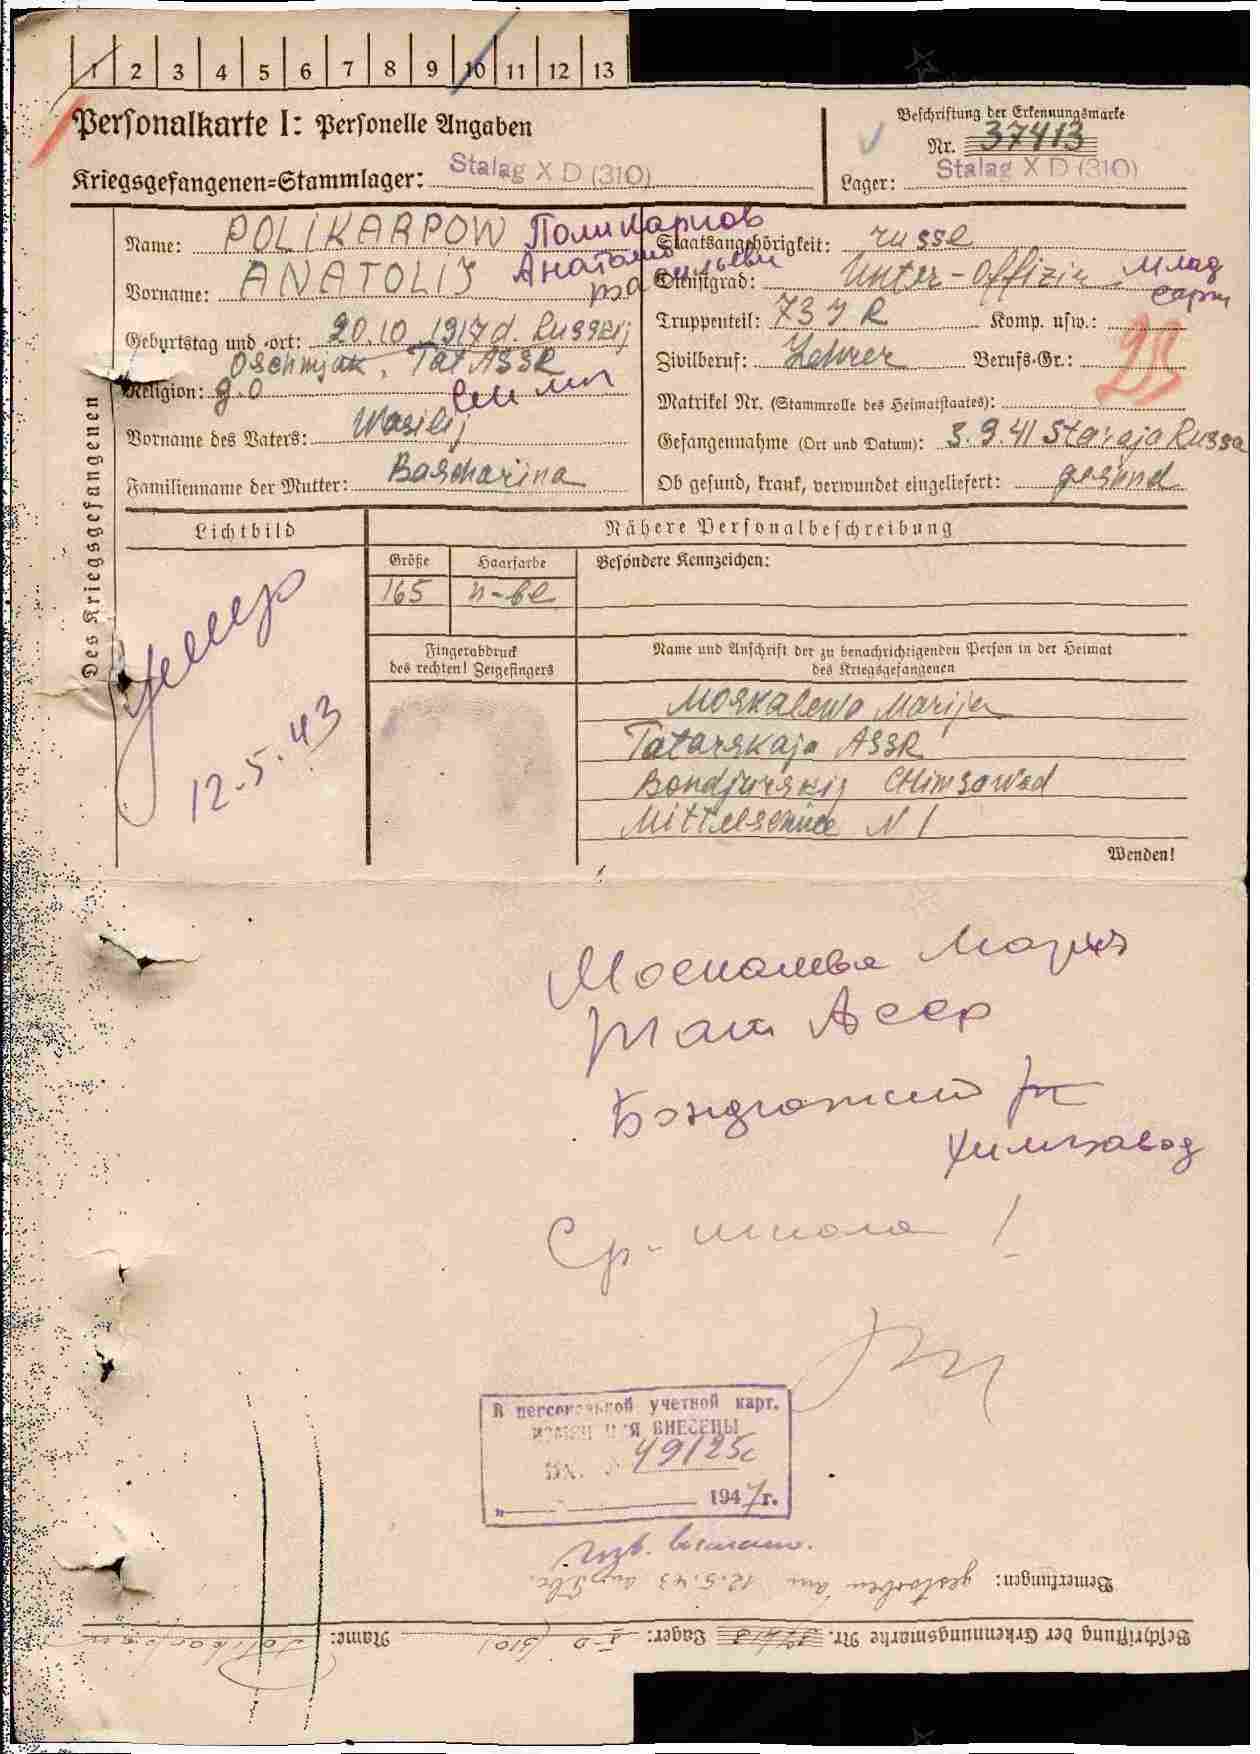 1 2 3 4 5 6 7 8 9 10 11 12 13
Personalkarte I: Personelle Angaben
Kriegsgefangenen=Stammlager: Stalag X D (310)
Beschriftung der Erkennungsmarke
Nr. 37413
Lager: Stalag X D (310)
Des Kriegsgefangenen
Name: POLIKARPOW Поликарпов
Vorname: ANATOLIJ Анатолий
Geburtstag und =ort: 20.10.1917 d. Russkij
Oschmjak, Tat ASSR
Religion: g.o
Vorname des Vaters: Wasilij
Familienname der Mutter: Bascharina
Staatsangehörigkeit: russe
Dienstgrad: Unter-Offizier Млад
серж
Truppenteil: 73 J R Komp. usw.:
Zivilberuf: Lehrer Berufs-Gr.: 25
Matrikel Nr. (Stammrolle des Heimatstaates):
Gefangennahme (Ort und Datum): 3.9.41 Staraja Russa
Ob gesund, krank, verwundet eingeliefert: gesund
Lichtbild
Nähere Personalbeschreibung
Größe Haarfarbe Besondere Kennzeichen:
165
умер
12.5.43
Fingerabdruck
des rechten! Zeigefingers
Name und Anschrift der zu benachrichtigenden Person in der Heimat
des Kriegsgefangenen
Moskalewa Marija
Tatarskaja ASSR
Bondjurskij Chimsawod
Mittelschule N 1
Wenden!
Москалева Мария
Тат Асср
Бондюжский
Химзавод
Ср. школа 1
В персональной учетной карт.
изменения ВНЕСЕНЫ
Вх. № 49125с
„ 1947г.
Bemerkungen: gestorben am 12.5.43
Beschriftung der Erkennungsmarke Nr. 37413 Lager: X D (310) Name: Polikarpow